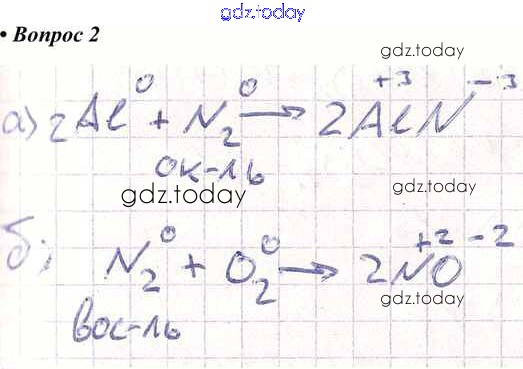 gdz.today
• Вопрос 2
gdz.today
а) 2Al⁰ + N₂⁰ → 2Al⁺³N⁻³
ок-ль
gdz.today
gdz.today
б) N₂⁰ + O₂⁰ → 2N⁺²O⁻²
gdz.today
вос-ль